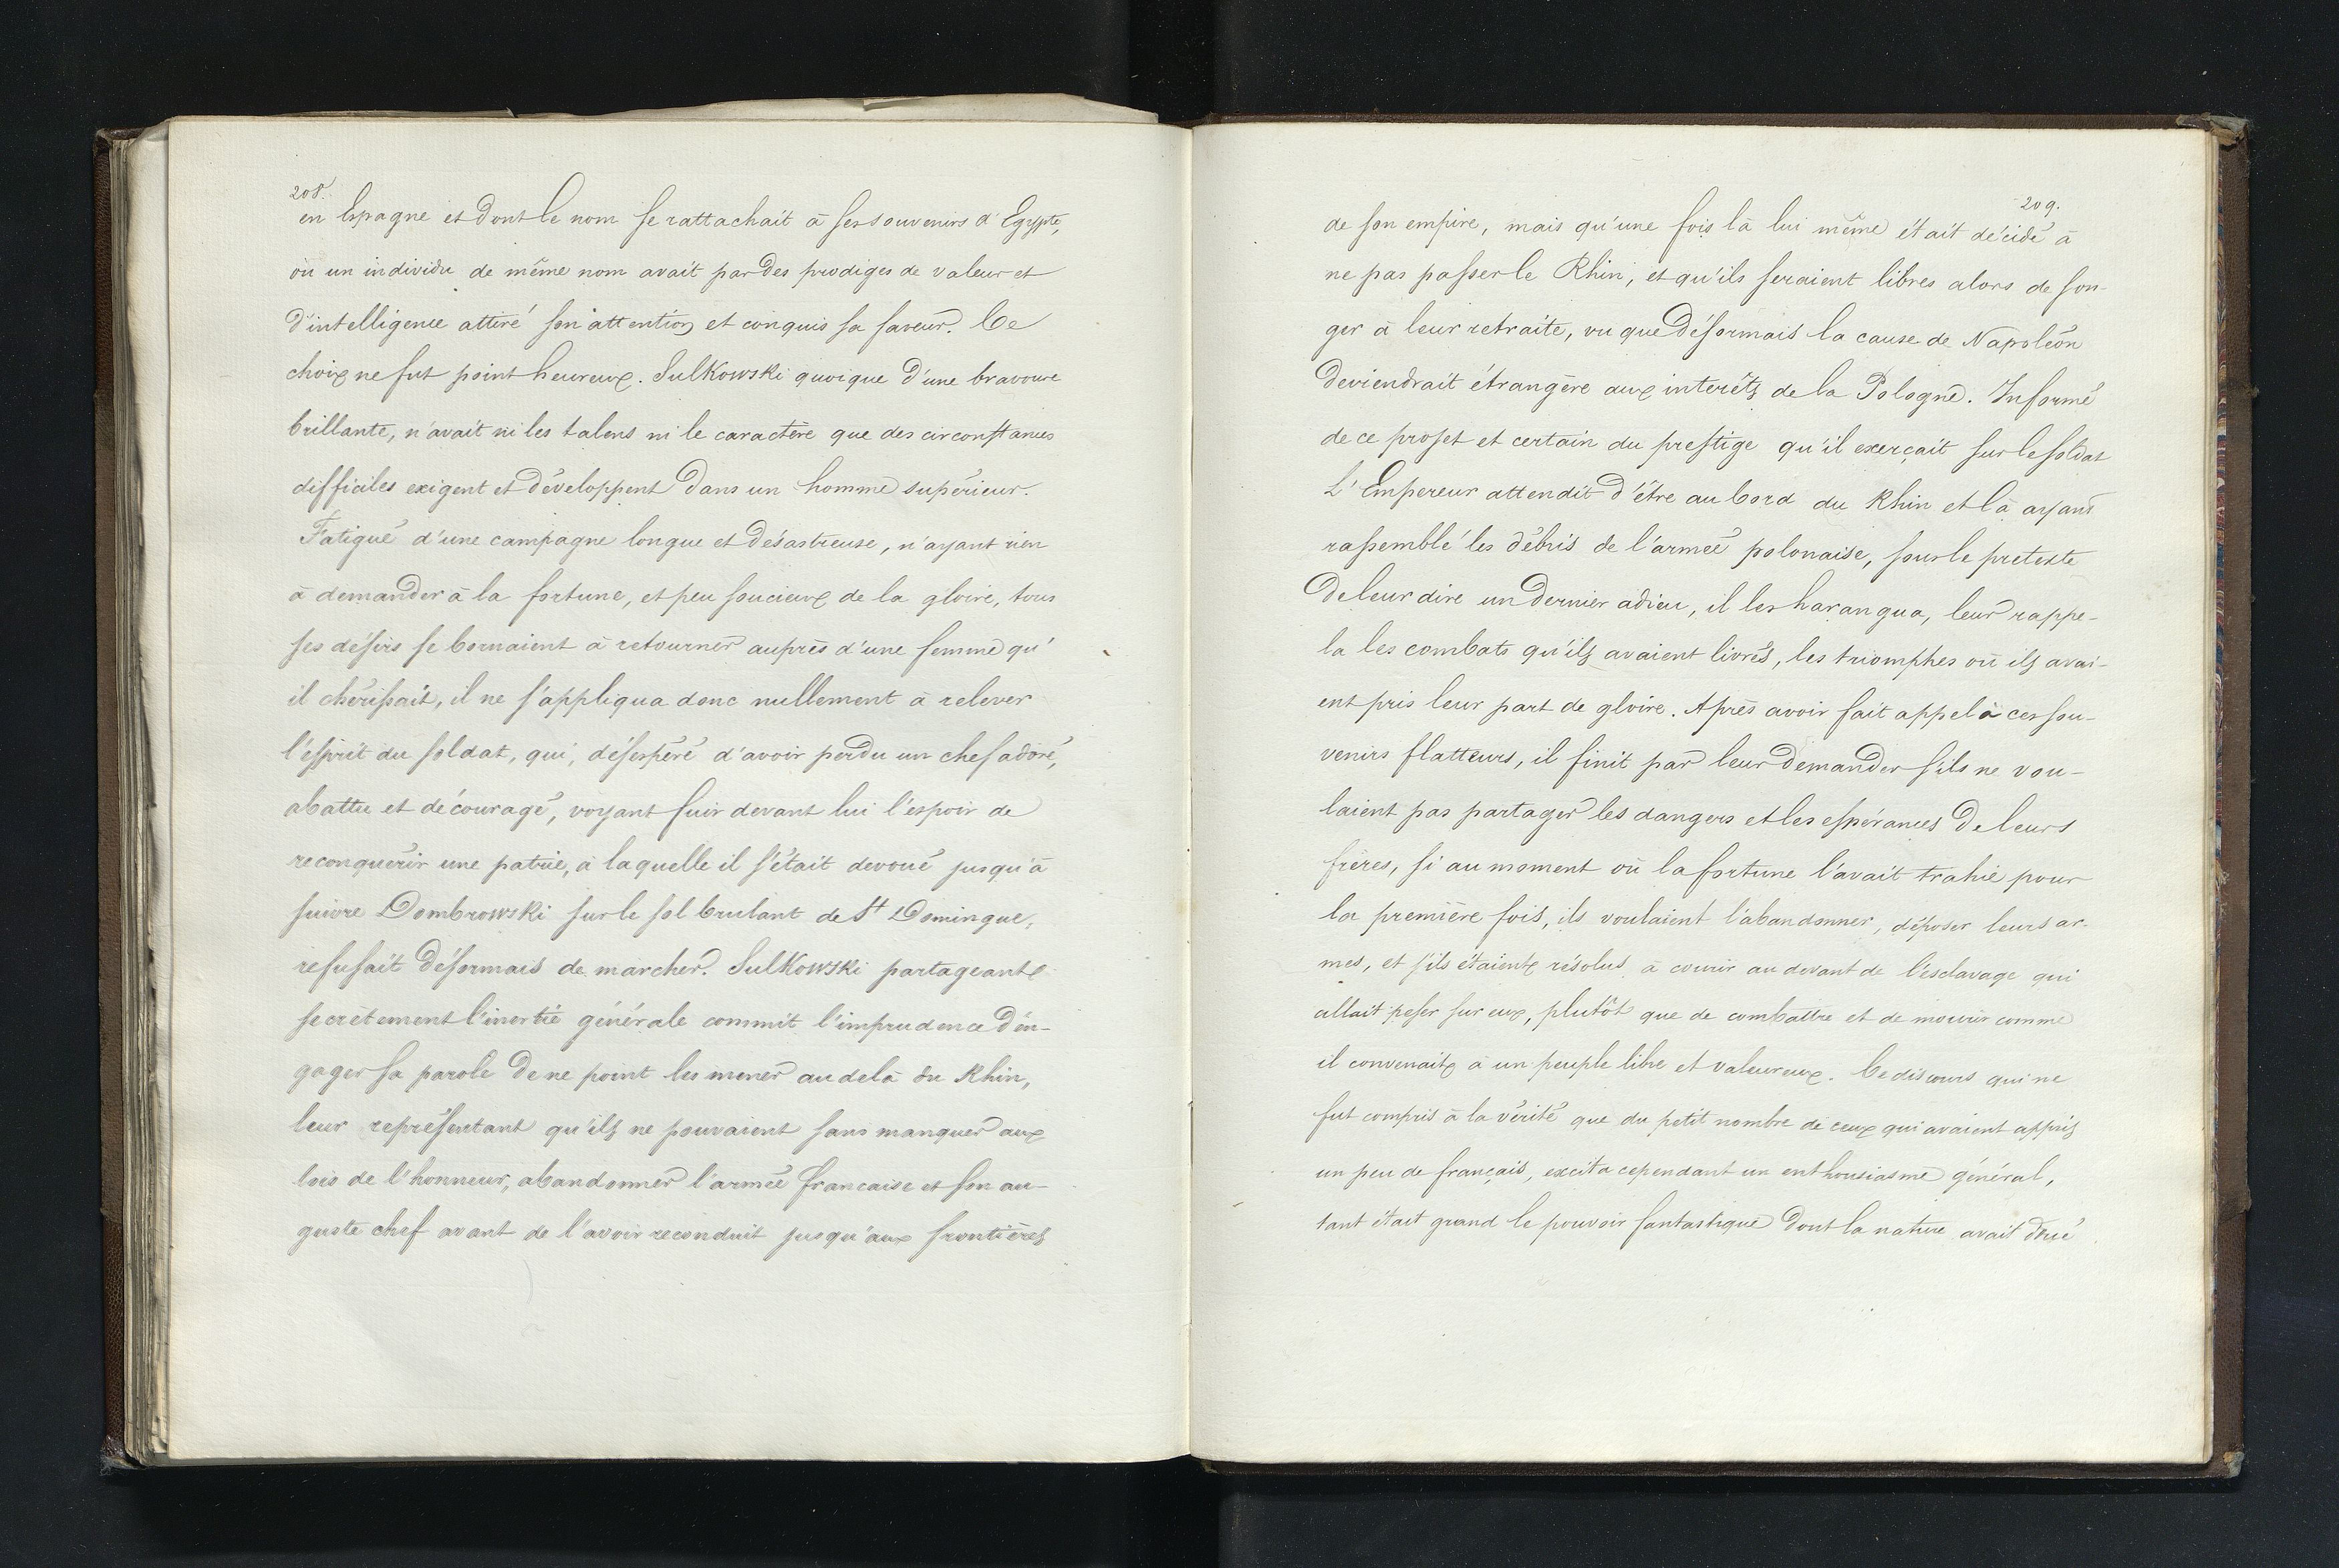 208.
en Espagne et dont le nom se rattachait à ses souvenirs d'Egypte,
où un individu de même nom avait par des prodiges de valeur et
d'intelligence attiré son attention et conquis sa faveur. Ce
choix ne fut point heureux. Sulkowski quoique d'une bravoure
brillante, n'avait ni les talens ni le caractère que des circonstances
difficiles exigent et développent dans un homme supérieur.
Fatigué d'une campagne longue et désastreuse, n'ayant rien
à demander à la fortune, et peu soucieux de la gloire, tous
ses désirs se bornaient à retourner auprès d'une femme qu'
il chérissait, il ne s'appliqua donc nullement à relever
l'esprit du soldat, qui, désespéré d'avoir perdu un chef adoré,
abattu et découragé, voyant fuir devant lui l'espoir de
reconquérir une patrie, à laquelle il s'était devoué jusqu'à
suivre Dombrowski sur le sol brulant de St Domingue,
refusait désormais de marcher. Sulkowski partageant
secrètement l'inertie générale commit l'imprudence d'en-
gager sa parole de ne point les mener au delà du Rhin,
leur représentant qu'ils ne pouvaient sans manquer aux
lois de l'honneur, abandonner l'armée francaise et son au-
guste chef avant de l'avoir reconduit jusqu'aux frontières
209.
de son empire, mais qu'une fois là lui même était décidé à
ne pas passer le Rhin, et qu'ils seraient libres alors de son-
ger à leur retraite, vu que désormais la cause de Napoléon
deviendrait étrangère aux interêts de la Pologne. Informé
de ce projet et certain du prestige qu'il exerçait sur le soldat
L'Empereur attendit d'être au bord du Rhin et là ayant
rassemblé les débris de l'armée polonaise, sous le pretexte
de leur dire un dernier adieu, il les harangua, leur rappe-
la les combats qu'ils avaient livrés, les triomphes où ils avai-
ent pris leur part de gloire. Après avoir fait appel à ces sou-
venirs flatteurs, il finit par leur demander s'ils ne vou-
laient pas partager les dangers et les espérances de leurs
frères, si au moment où la fortune l'avait trahie pour
la première fois, ils voulaient l'abandonner, déposer leurs ar-
mes, et s'ils étaient résolus à courir au devant de l'esclavage qui
allait peser sur eux, plutôt que de combattre et de mourir comme
il convenait à un peuple libre et valeureux. Ce discours qui ne
fut compris à la vérité que du petit nombre de ceux qui avaient appris
un peu de français, excita cependant un enthousiasme général,
tant était grand le pouvoir fantastique dont la nature avait doué